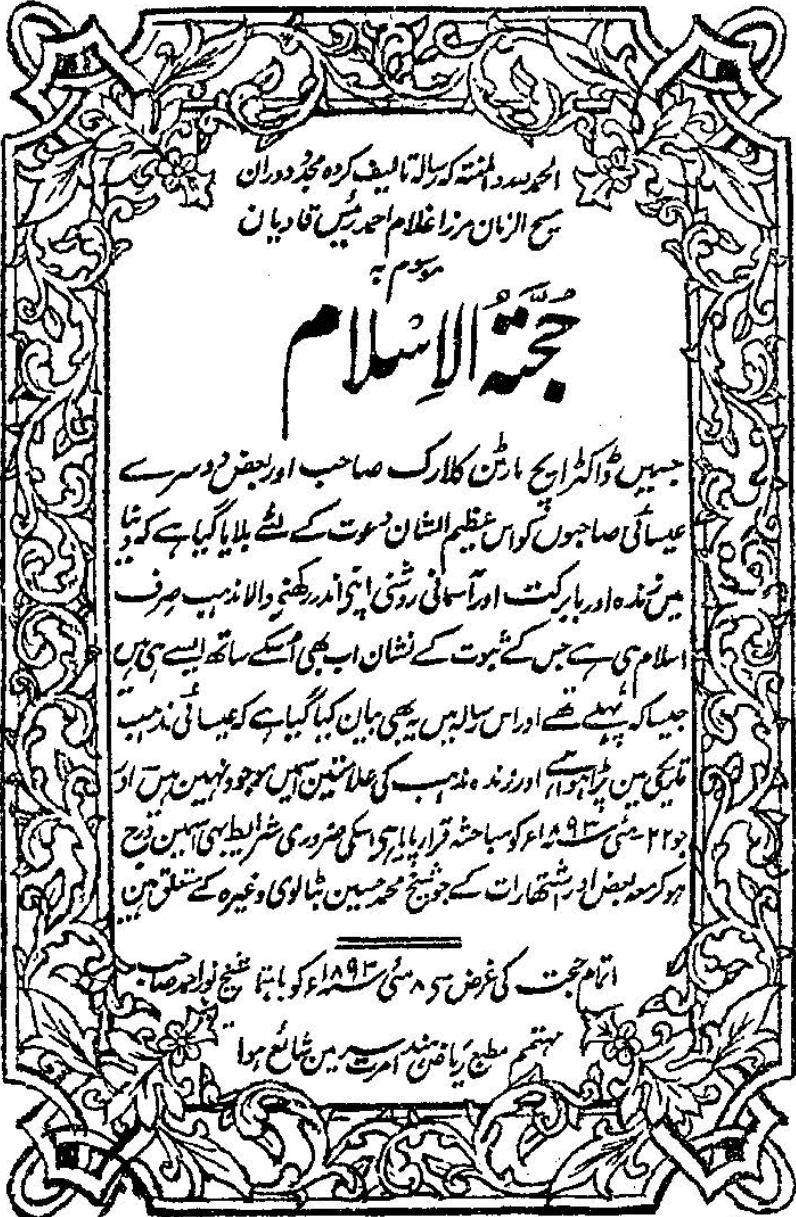 الحمد للہ والمنۃ کہ رسالہ تالیف کردہ مجدد دوران
مسیح الزمان مرزا غلام احمد رئیس قادیان
موسوم بہ
حُجَّۃُ الاِسْلام
جسمیں ڈاکٹر ایچ مارٹن کلارک صاحب اور بعض دوسرے
عیسائی صاحبوں کو اس عظیم الشان دعوت کے لئے بلایا گیا ہے کہ دنیا
میں زندہ اور بابرکت اور آسمانی روشنی اپنی اندر رکھنے والا مذہب صرف
اسلام ہی ہے جس کے ثبوت کے نشان اب بھی اُسکے ساتھ ایسے ہی ہیں
جیسا کہ پہلے تھے اور اس رسالہ میں یہ بھی بیان کیا گیا ہے کہ عیسائی مذہب
تاریکی مین پڑا ہوا ہے اور زندہ مذہب کی علامتین اسمیں موجود نہین ہیں اور
جو ۲۲- مئی ۱۸۹۳ء کو مباحثہ قرار پایا ہی اسکی ضروری شرایط بہی اسمین درج
ہوکر معہ بعض اور اشتہارات کے جو شیخ محمد حسین بٹالوی وغیرہ کے متعلق ہین
اتمام حجت کی غرض سی ۸ مئی ۱۸۹۳ء کو باہتمام شیخ نور احمد صاحب
مہتمم مطبع ریاض ہند امرت سر مین شائع ہوا